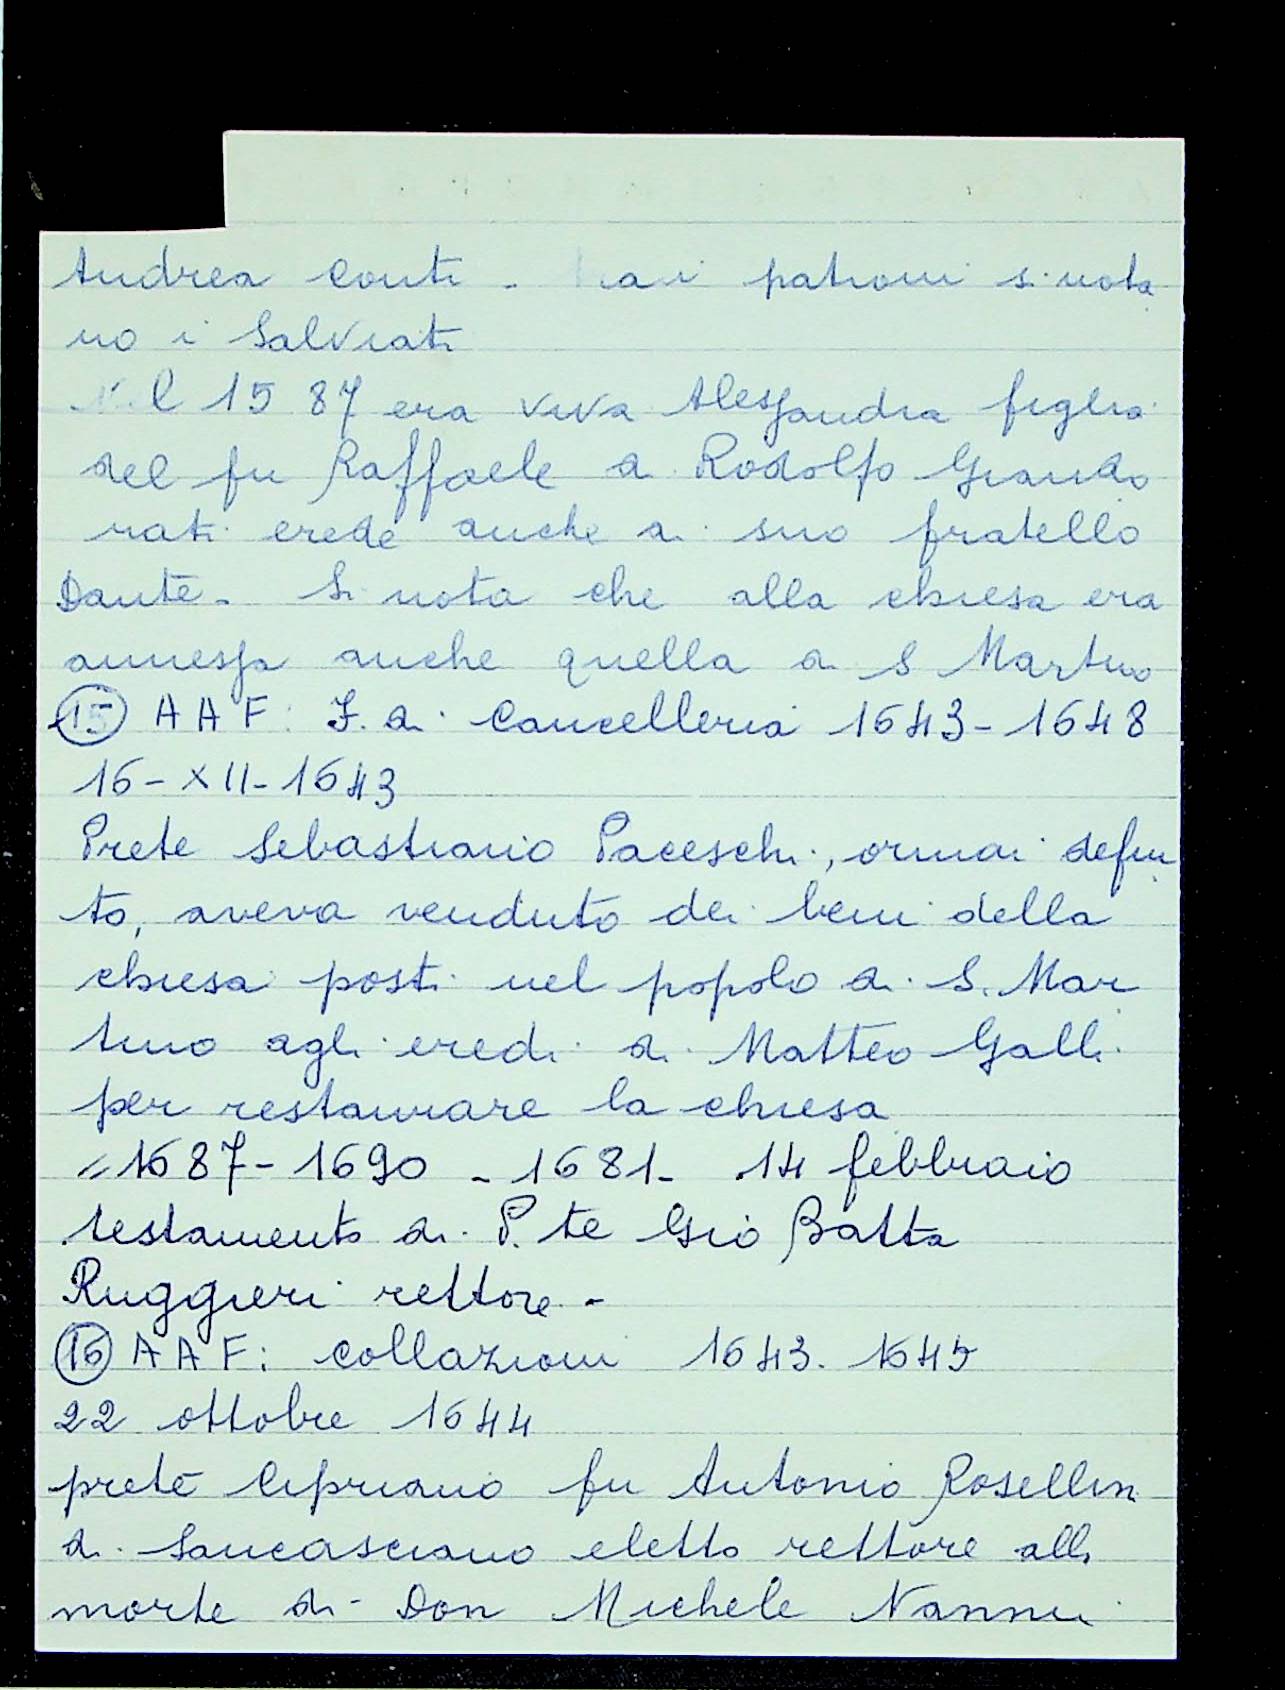 Andrea Conti - tra i patroni si nota
no i Salviati
Nel 1587 era viva Alessandra figlia
del fu Raffaele di Rodolfo Giando
nati erede anche di suo fratello
Dante - Si nota che alla chiesa era
annessa anche quella di S Martino
15 AAF: F. di Cancelleria 1643-1648
16-XII-1643
Prete Sebastiano Paceschi, ormai defun
to, aveva venduto dei beni della
chiesa posti nel popolo di S. Mar
tino agli eredi di Matteo Galli
per restaurare la chiesa
= 1687-1690 - 1681- 14 febbraio
testamento di P.te Giò Batta
Ruggieri rettore -
16 AAF: Collazioni 1643. 1645
22 ottobre 1644
prete Cipriano fu Antonio Rosellini
di Sancasciano eletto rettore alla
morte di Don Michele Nannini